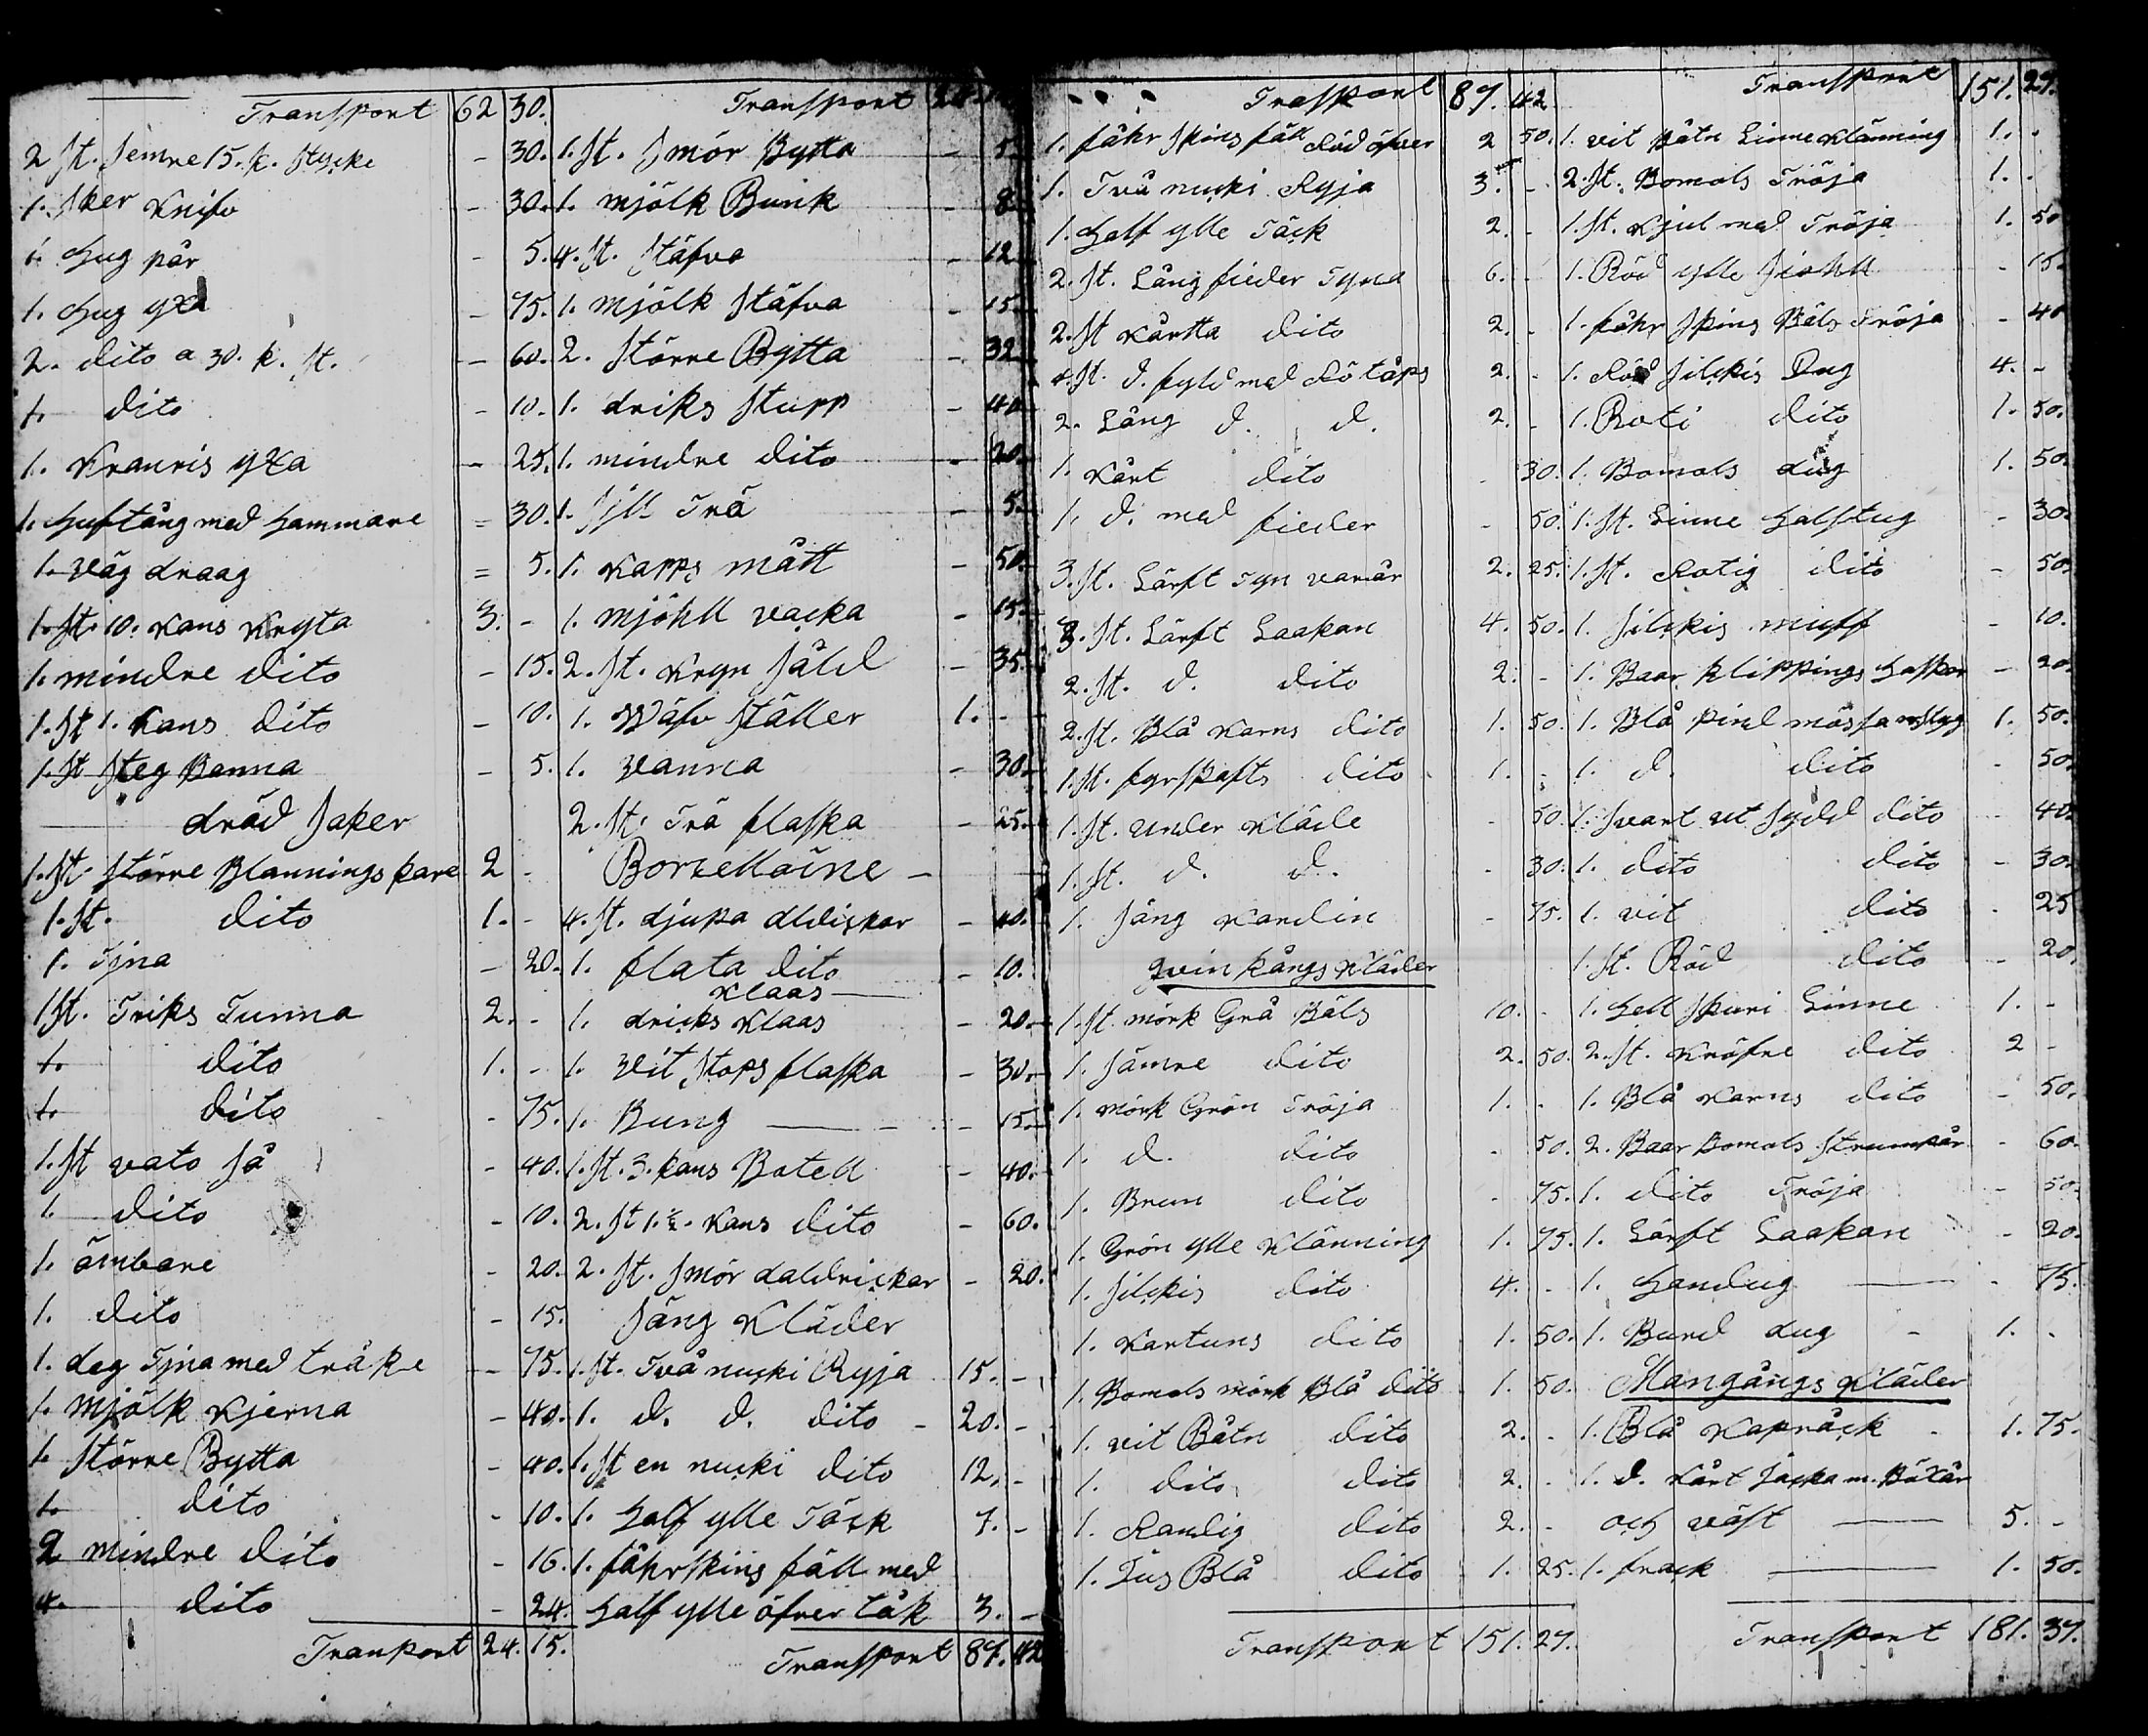 Transsport 62 30.
2 st. semre 15. k. stycke - 30.
1. sker Knifv - 30.
1. Hug pår - 5.
1. Hug yxa - 75.
2. dito a 30. k. st. - 60.
1. dito - 10.
1. Kranris yxa - 25.
1. Huftång med Hammare = 30.
1. väg draag = 5.
1. st. 10. Kans Kryta 3. -
1. mindre dito - 15.
1. st 1. Kans dito - 10.
1. st steg Banna - 5.
dräd saker
1. st. större Blannings kare 2 -
1. st. dito 1. -
1. Tjna - 20.
1 st. Triks Tunna 2. -
1. dito 1. -
1. dito - 75.
1. st vato så - 40.
1. dito - 10.
1. ämbare - 20.
1. dito - 15.
1. deg Tjna med tråke - 75.
1. Mjölk Kjerna - 40.
1. större Bytta - 40.
1. dito - 10.
2 mindre dito - 16.
4. dito - 24.
Tranport 24. 15.
Transsport 24. 15
1. st. smör Bytta - 5.
1. mjölk Bunk - 8.
4. st. stäfva - 12
1. mjölk stäfva - 15.
2. större Bytta - 32
1. driks stupp - 40
1. mindre dito - 20.
1. sjll Trä - 5.
1. Kapps mått - 50.
1. mjöhll vacka - 15.
2. st. Kryn såld - 35.
1. Wäfv ställer 1. -
1. vanna - 30.
2. st. Trä flaska - 25.
Borzellaine -
4. st. djupa aldickar - 40.
1. flata dito - 10.
Klaas
1. dricks Klaas - 20.
1. vit stops flaska - 30.
1. Bung - 15.
1. st. 3. kans Botell - 40.
2. st 1. ½. Kans dito - 60.
2. st. smör daldrickar - 20.
säng Kläder
1. st. Två nucki Ryja 15. -
1. d. d. dito - 20. -
1. st en nucki dito 12. -
1. Half ylle Täck 7. -
1. fåhrskins fäll med
Half ylle öfver täk 3. -
Transsport 87. 42
Trassport 87. 42.
1. fåhr skins fäll Röd öfver 2 50.
1. Två nucki Ryja 3. -
1. Half ylle Täck 2. -
2. st. Lång fieder Tyna 6. -
2. st Kårtta dito 2. -
4. st. d. fyld med Rö tåps 2. -
2. Lång d. d. 2. -
1. Kårt dito - 30.
1. d. med fieder - 50.
3. st. Lärft Tyn varvår 2. 25.
3. st. Lärft Laakan 4. 50.
2. st. d. dito 2. -
2. st. Blå Karns dito 1. 50.
1. st. fyrskafts dito 1. -
1. st. under Kläde - 50.
1. st. d. d. - 30.
1. säng Kardin - 75.
Qvin kångs Kläder
1. st. mörk Grå Päls 10. -
1. sämre dito 2. 50.
1. mörk Grön Tröja 1. -
1. d. dito - 50.
1. Brun dito - 75.
1. Grön ylle Klänning 1. 75.
1. silckis dito 4. -
1. Kartuns dito 1. 50.
1. Bomols mörk Blå dito 1. 50.
1. vit Båtn dito 2. -
1. dito dito 2. -
1. Randig dito 2. -
1. Lius Blå dito 1. 25.
Transsport 151. 27.
Transsport 151. 27.
1. vit Båtn Linne Klänning 1. .
2. st. Bomols Tröja 1. .
1. st. Kjul med Tröja 1. 50
1. Röd ylle siohll - 15.
1. fåhr skins Päls Tröja - 40
1. Röd silckis Dug 4. -
1. Roti dito 1. 50.
1. Bomols dug 1. 50.
1. st. Linne Halstug - 30.
1. st. Rotig dito - 50.
1. silckis muff - 10.
1. Baar klippings Haskor - 20.
1. Blå pind mössa m styg 1. 50.
1. d. dito - 50.
1. svart ut sydd dito - 40.
1. dito dito - 30.
1. vit dito - 25
1. st. Röd dito - 20.
1. Hell skuri Linne 1. -
2. st. Kröfre dito 2 -
1. Blå Karns dito - 50.
2. Baar Bomols strumpår - 60.
1. dito Tröja - 50.
1. Lärft Laakan - 20.
1. Handug - 75.
1. Burd dug - 1. .
Mangångs Kläder
1. Blå Kapråck 1. 75.
1. d. Kårt jacka m. Böxår
och väst 5. -
1. frack 1. 50.
Transsport 181. 37.